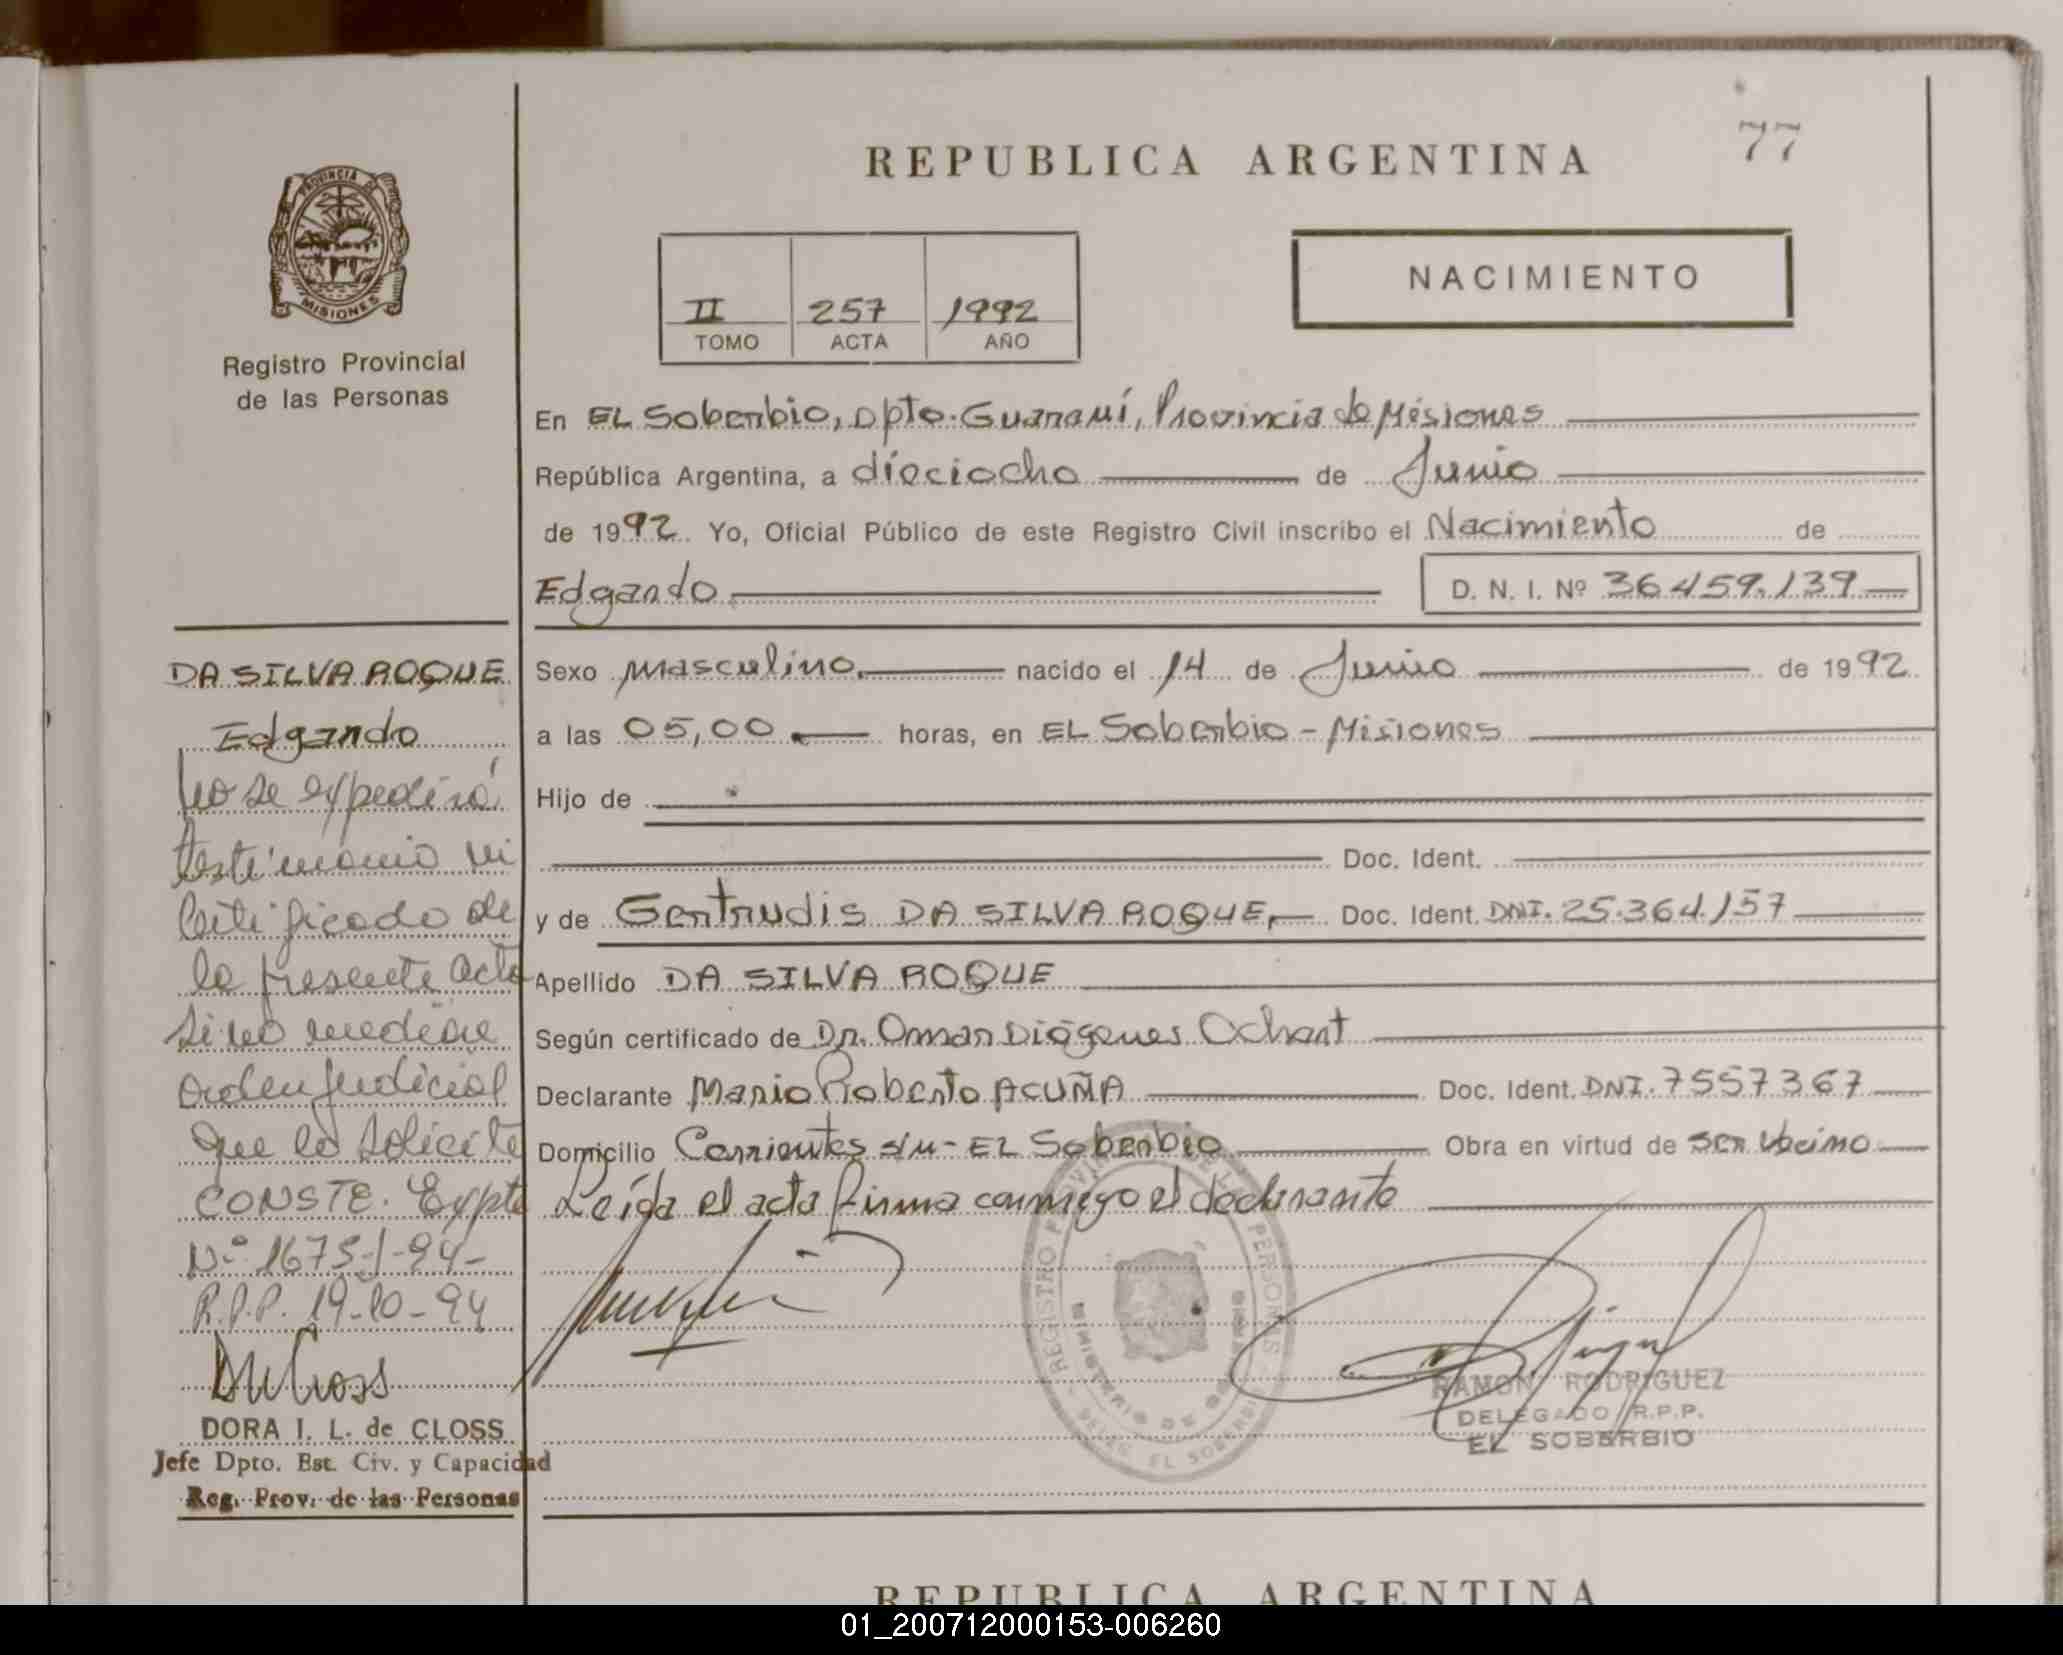 77
REPUBLICA ARGENTINA
PROVINCIA DE
MISIONES
Registro Provincial
de las Personas
NACIMIENTO
II 257 1992
TOMO ACTA AÑO
En EL Soberbio, Dpto. Guaraní, Provincia de Misiones
República Argentina, a dieciocho de Junio
de 1992. Yo, Oficial Público de este Registro Civil inscribo el Nacimiento de
Edgardo D. N. I. Nº 36.459.139
Sexo masculino nacido el 14 de Junio de 1992
a las 05,00 horas, en EL Soberbio - Misiones
Hijo de
Doc. Ident.
y de Gertrudis DA SILVA ROQUE, Doc. Ident. DNI. 25.364.157
Apellido DA SILVA ROQUE
Según certificado de Dr. Omar Diógenes Ochart
Declarante Mario Roberto ACUÑA Doc. Ident. DNI. 7557367
Domicilio Corrientes s/n - EL Soberbio Obra en virtud de ser Vecino
Leída el acta firma conmigo el declarante
DA SILVA ROQUE
Edgardo
No se expedirá
testimonio ni
Certificado de
la presente acta
si no mediare
orden judicial
que lo solicite
CONSTE. Expte
Nº 1675-J-94-
R.P.P. 19-10-94
DORA I. L. de CLOSS
Jefe Dpto. Est. Civ. y Capacidad
Reg. Prov. de las Personas
REGISTRO PROVINCIAL DE LAS PERSONAS
MINISTERIO DE GOBIERNO
DELEG. EL SOBERBIO
RAMON RODRIGUEZ
DELEGADO R.P.P.
EL SOBERBIO
REPUBLICA ARGENTINA
01_200712000153-006260